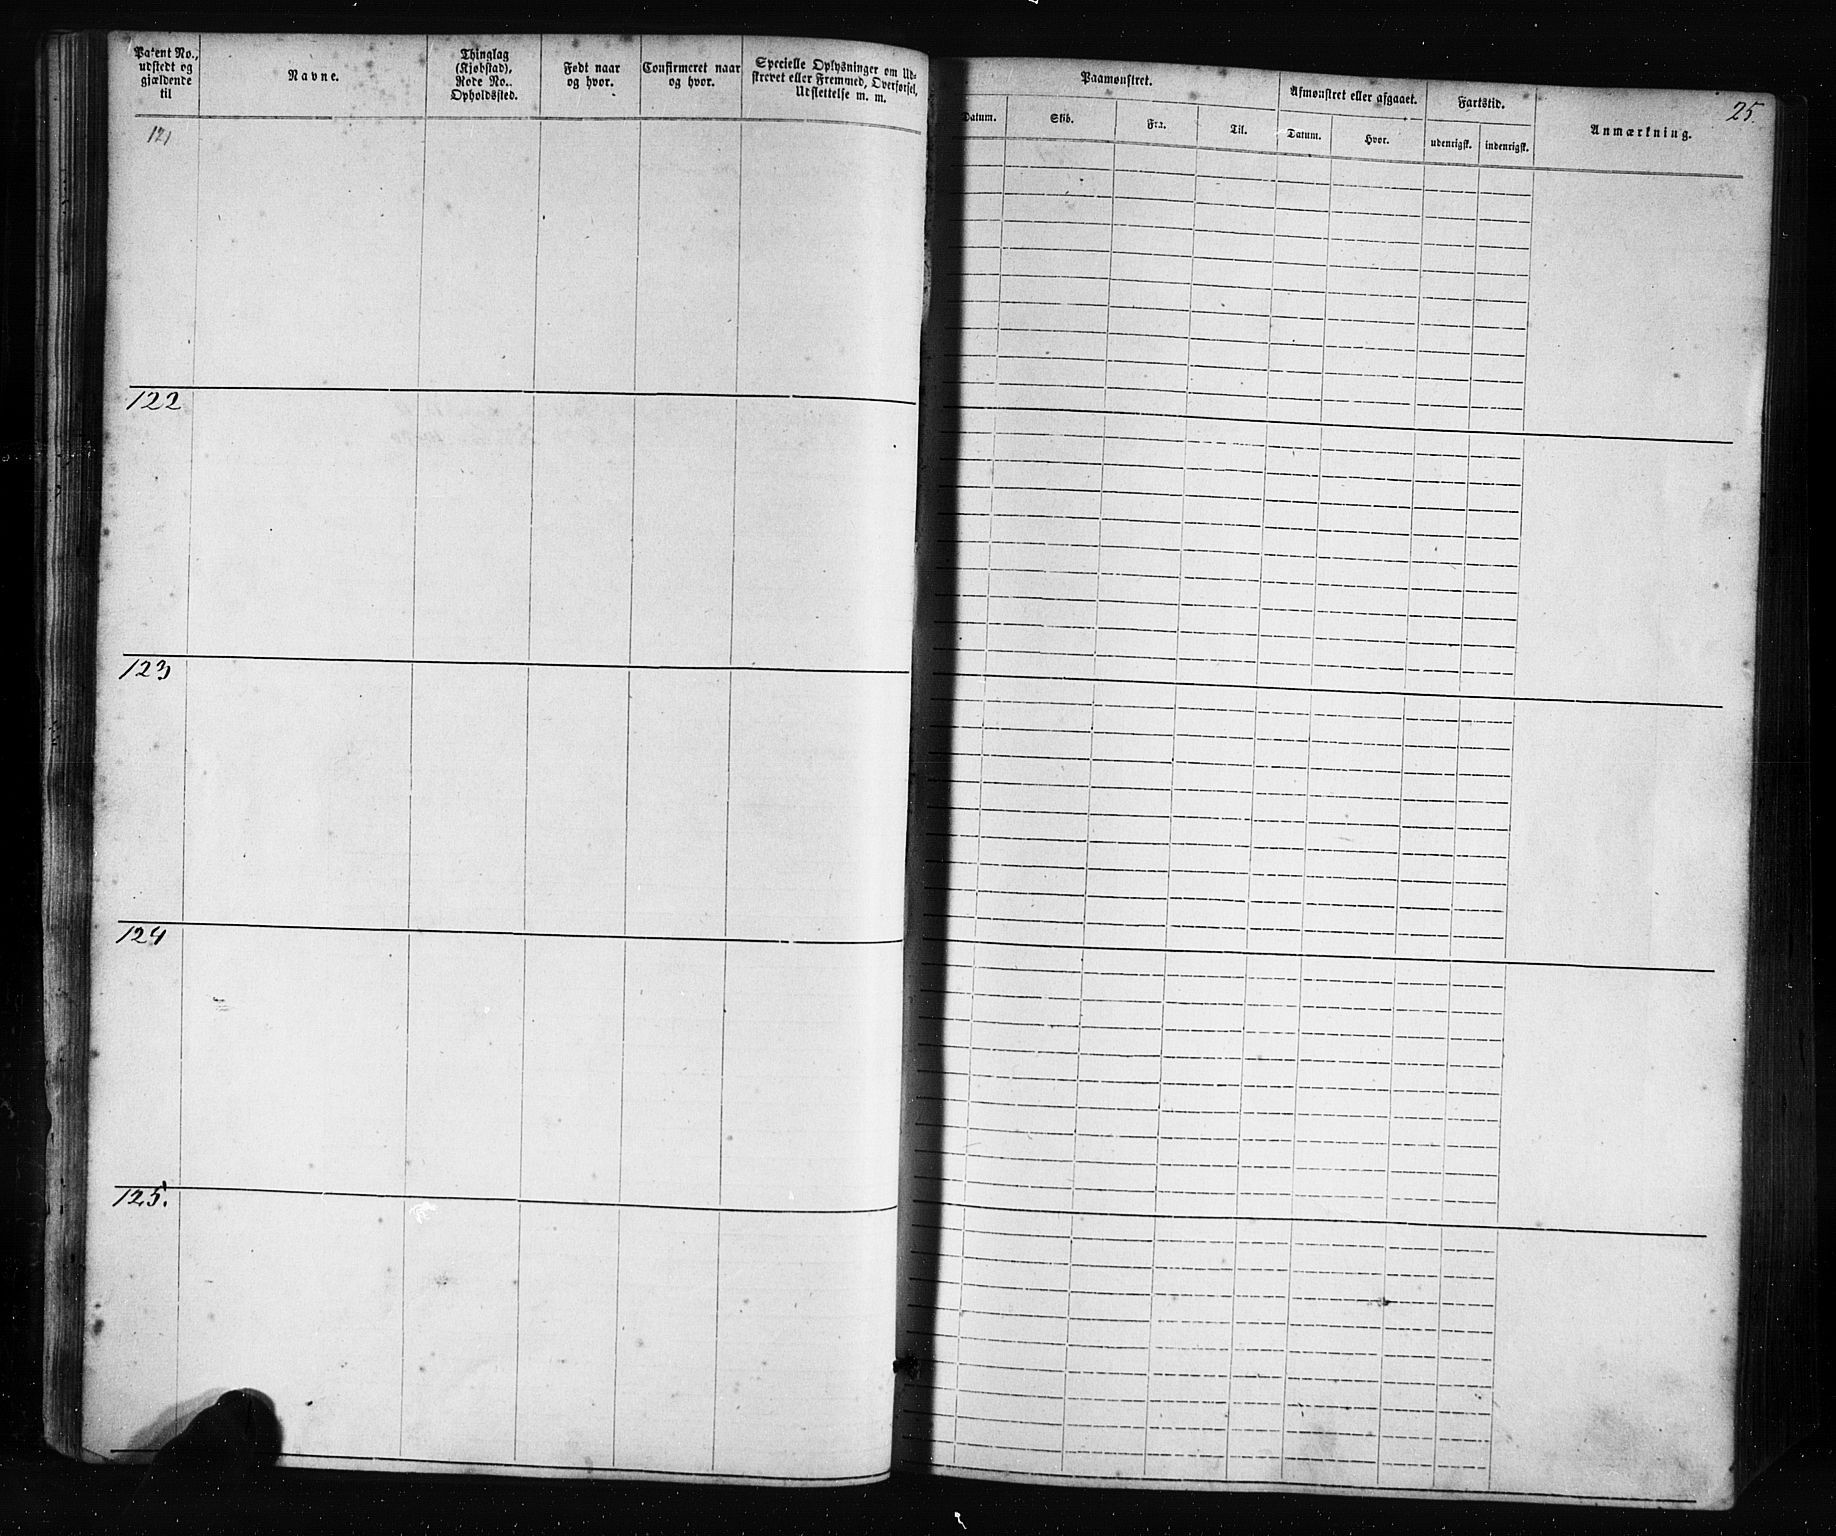 Patent No.,
udstedt og
gjældende
til
Navne.
Thinglag
(Kjøbstad),
Rode No..
Opholdssted.
Født naar
og hvor.
Confirmeret naar
og hvor.
Specielle Oplysninger om Ud-
skrevet eller Fremmed, Overførsel,
Udslettelse m. m.
Paamønstret.
Datum.
Skib.
Fra.
Til.
Afmønstret eller afgaaet.
Datum.
Hvor.
Fartstid.
udenrigsk.
indenrigsk.
Anmærkning.
25.
121
122
123
124
125.